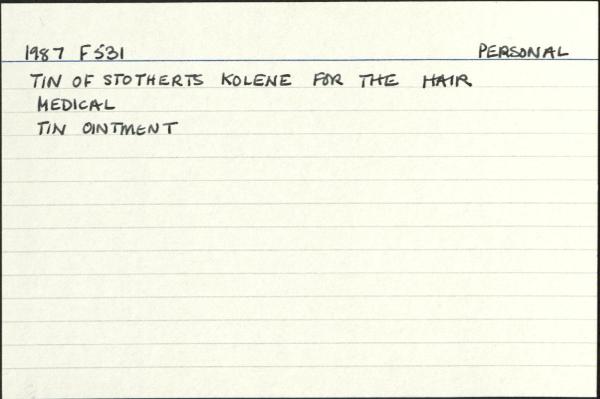 1987 F531 PERSONAL
TIN OF STOTHERTS KOLENE FOR THE HAIR
MEDICAL
TIN OINTMENT